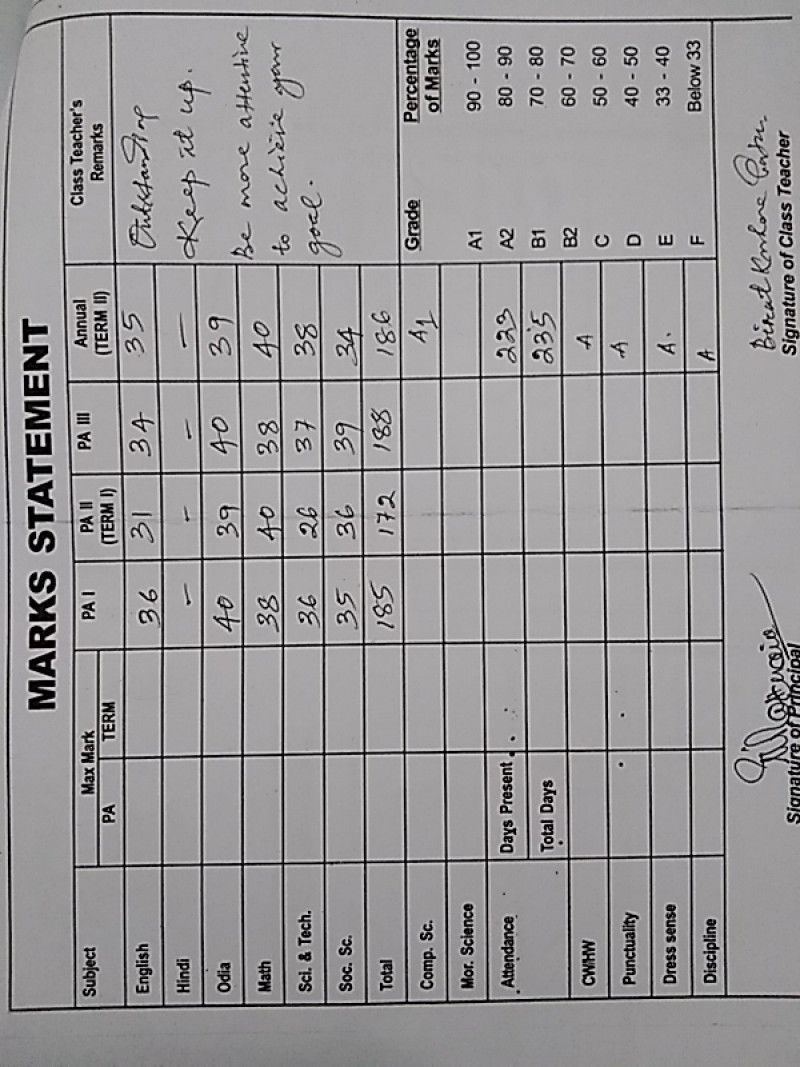 MARKS STATEMENT
Subject Max Mark PA I PA II (TERM I) PA III Annual (TERM II) Class Teacher's Remarks
PA TERM
English 36 31 34 35 Outstanding
Hindi - - - - Keep it up.
Odia 40 39 40 39
Math 38 40 38 40 Be more attentive
Sci. & Tech. 36 26 37 38 to achieve your
Soc. Sc. 35 36 39 34 goal.
Total 185 172 188 186
Comp. Sc. A1 Grade Percentage of Marks
Mor. Science A1 90 - 100
Attendance Days Present 223 A2 80 - 90
Total Days 235 B1 70 - 80
CW/HW A B2 60 - 70
Punctuality A C 50 - 60
D 40 - 50
Dress sense A. E 33 - 40
Discipline A F Below 33
Signature of Principal Signature of Class Teacher